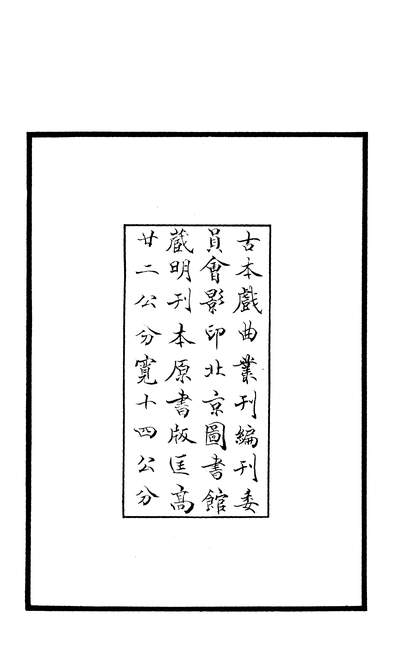 古本戲曲叢刊編刊委
員會影印北京圖書館
藏明刊本原書版匡高
廿二公分寬十四公分